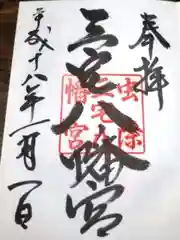 奉拝
三宅八幡宮
平成十八年一月一日
虫除
三宅八
幡宮